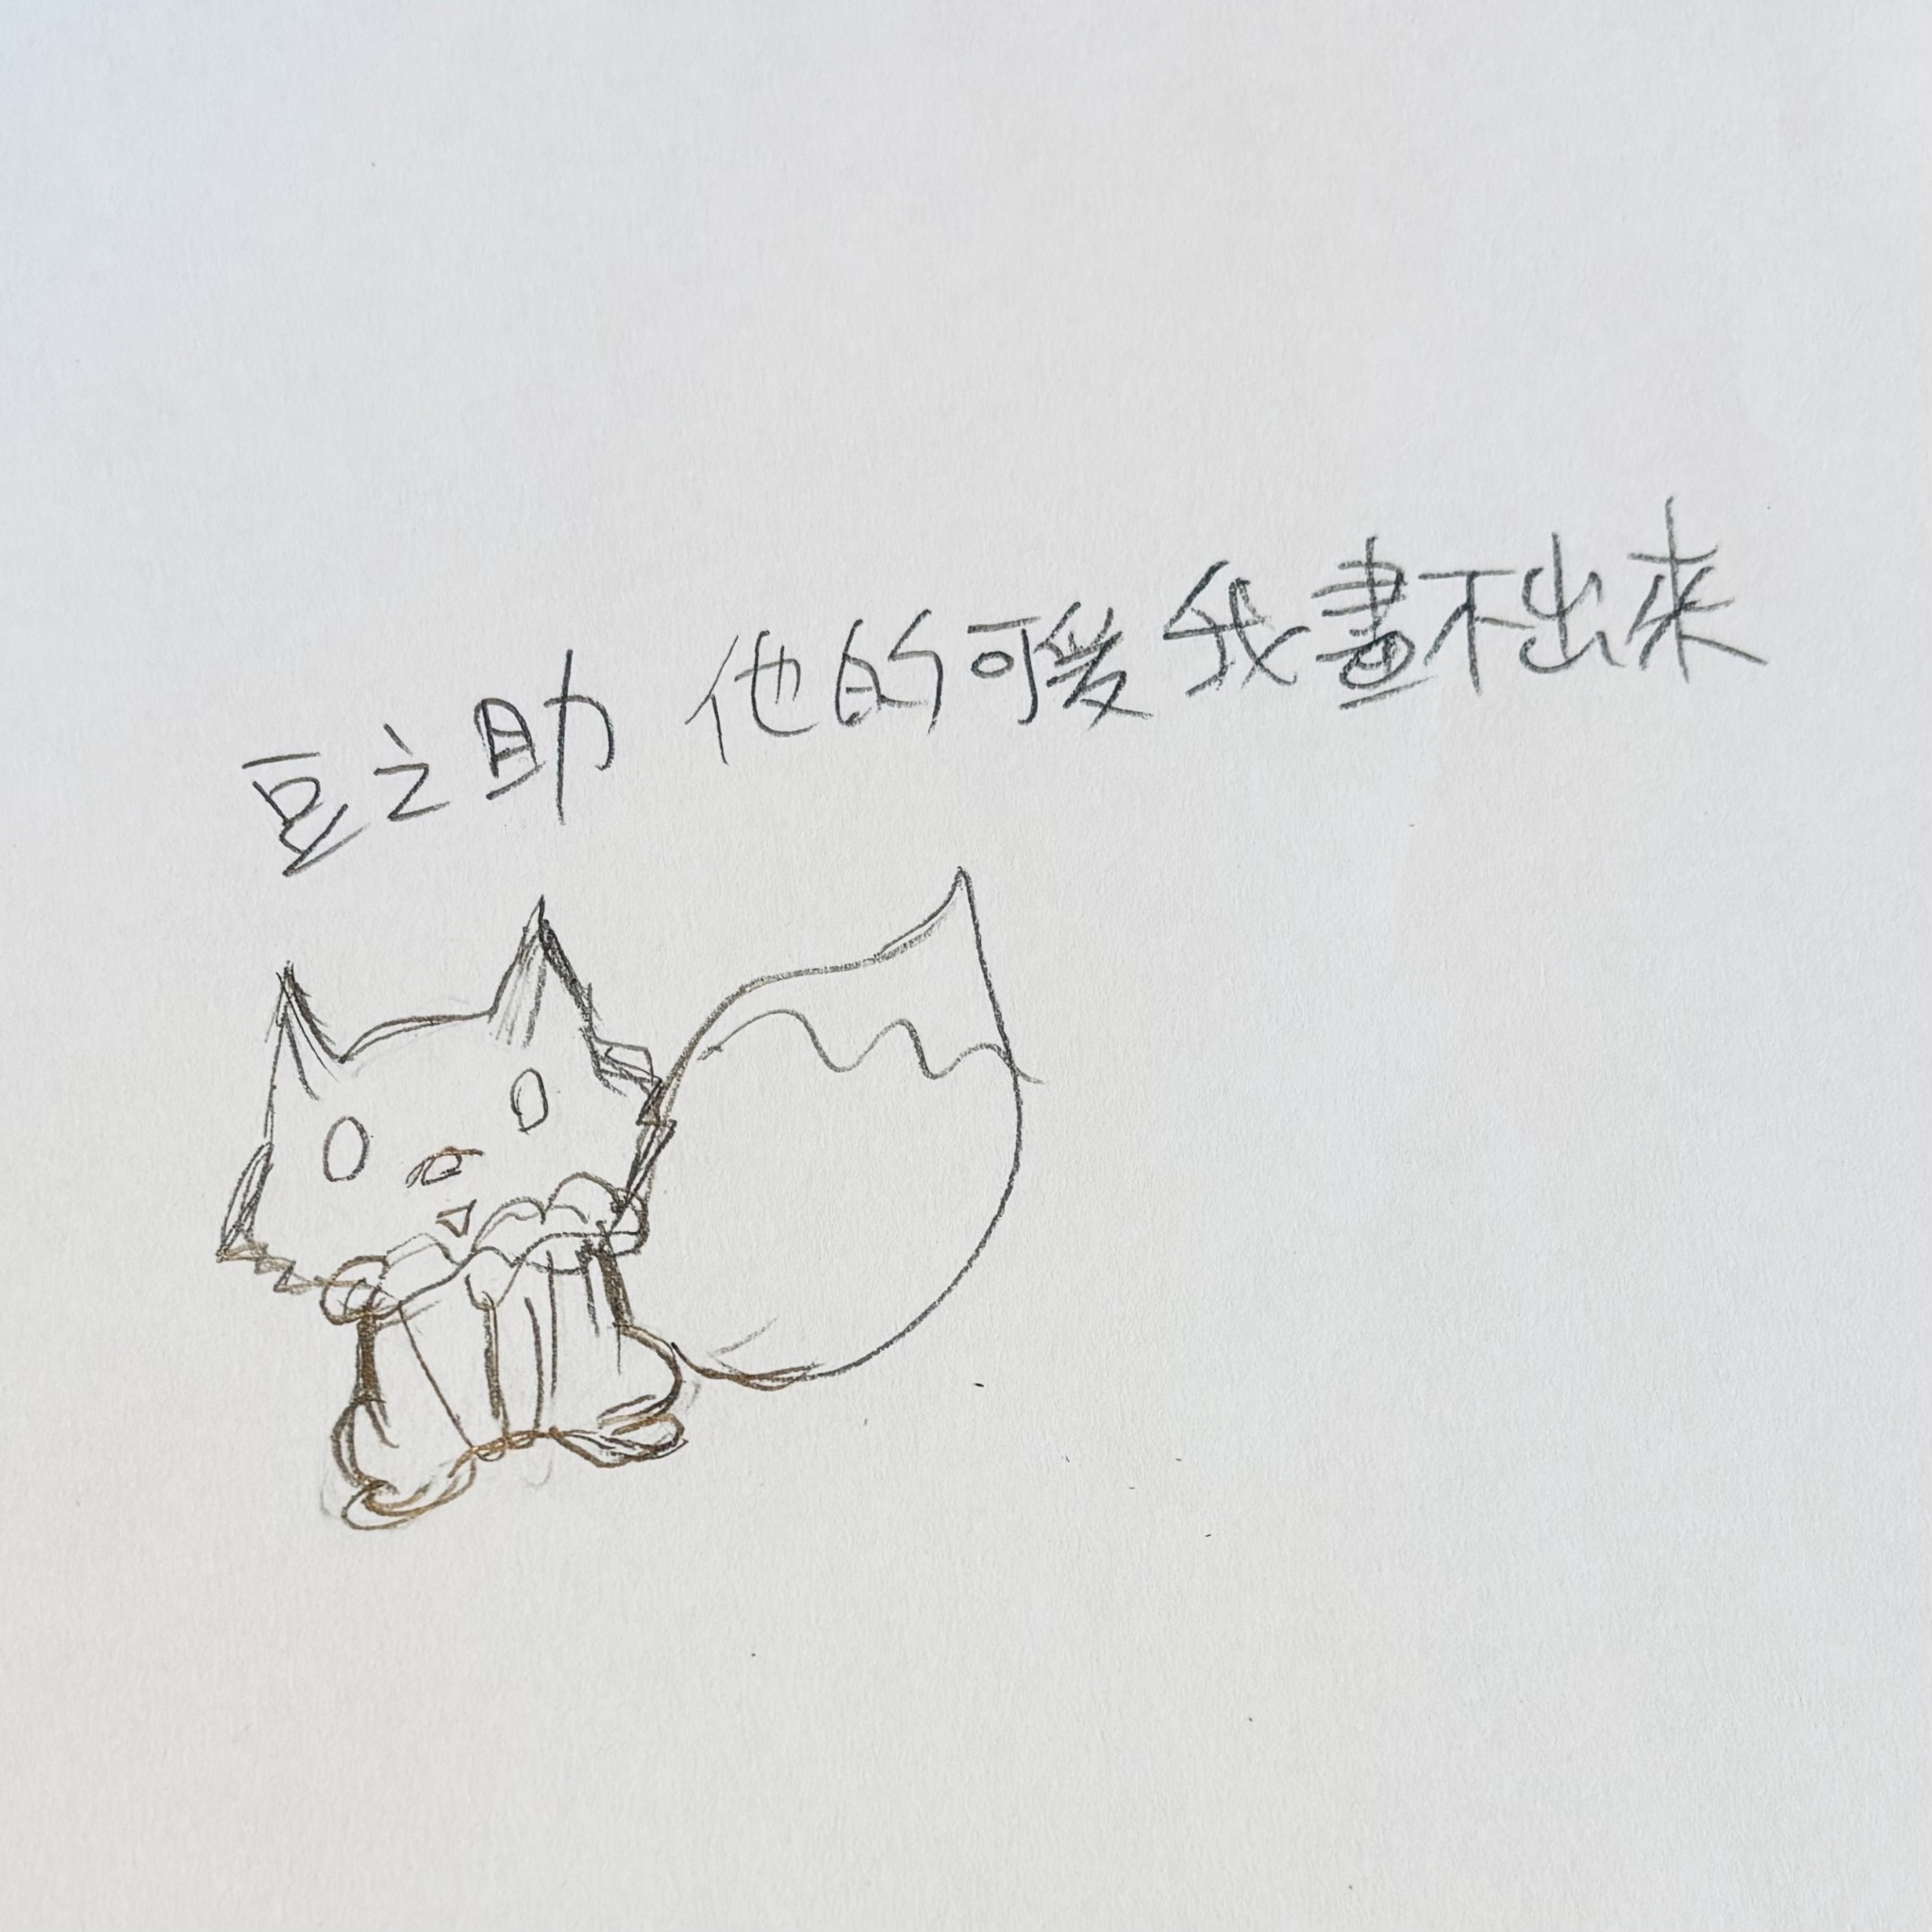 豆之助 他的可愛我畫不出来